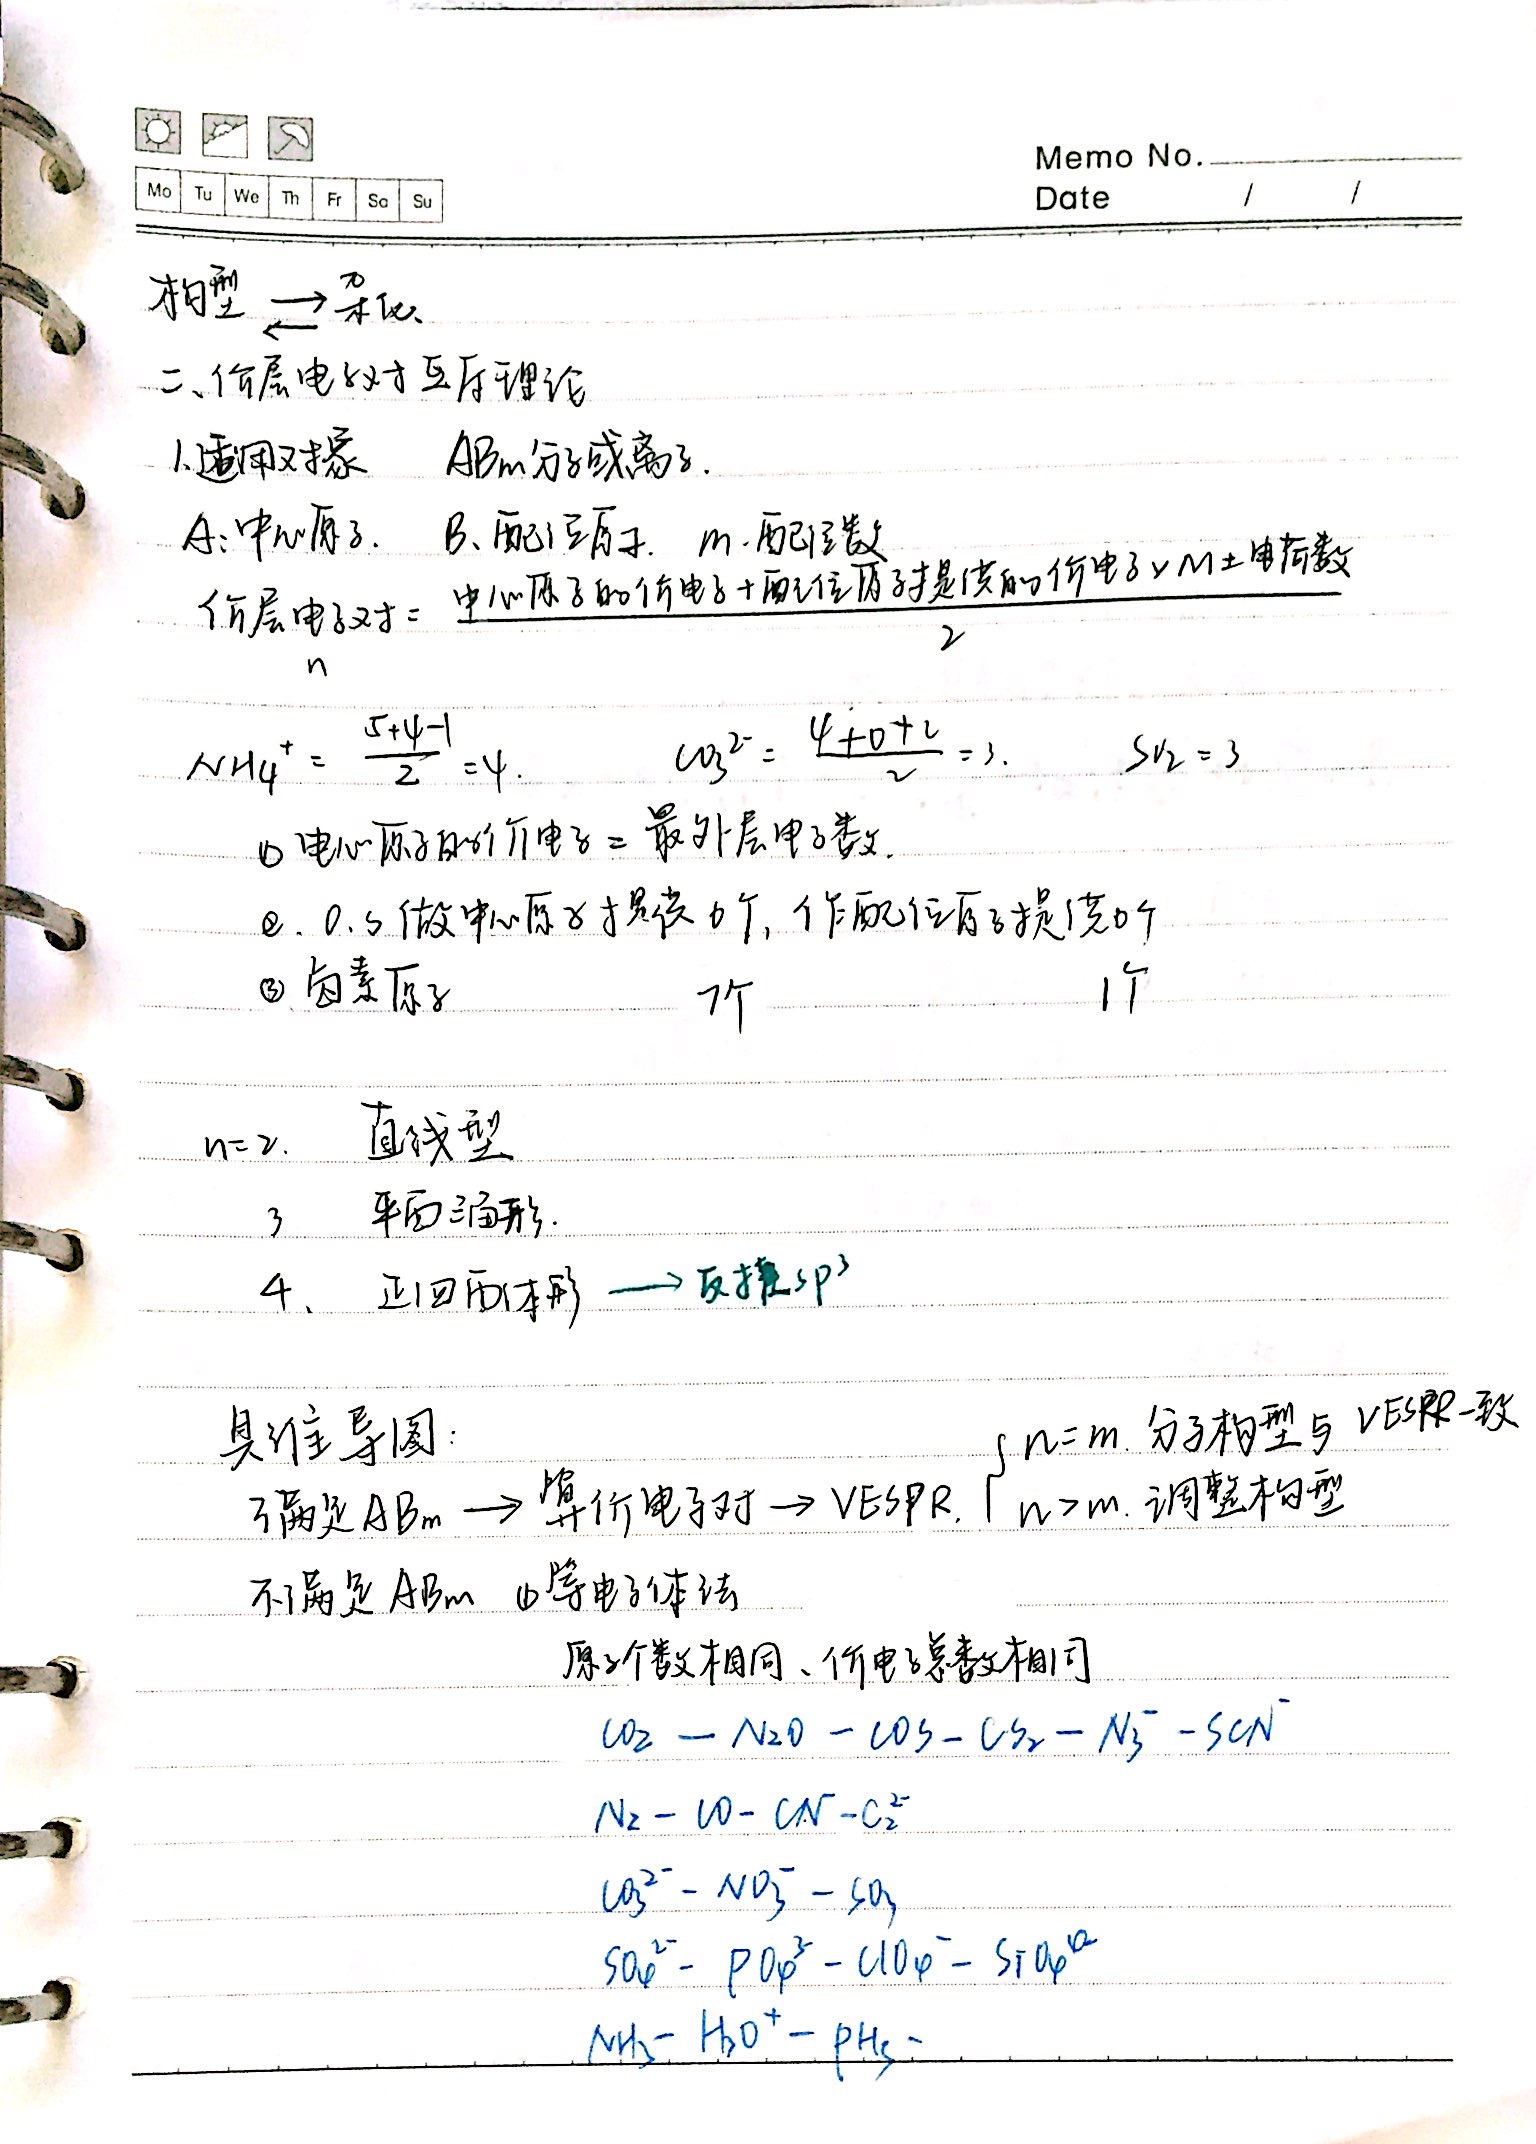 Memo No.
Mo Tu We Th Fr Sa Su
Date / /
构型 ⇄ 杂化
二、价层电子对互斥理论
1.适用对象 ABm分子或离子.
A:中心原子. B、配位原子. m.配位数
价层电子对 = (中心原子的价电子+配位原子提供的价电子×M±电荷数)/2
n
NH4⁺ = (5+4-1)/2 = 4. CO3²⁻ = (4+0+2)/2 = 3. = 3
① 中心原子的价电子 = 最外层电子数.
②. O.S做中心原子提供6个, 作配位原子提供0个
③ 卤素原子 7个 1个
n=2. 直线型
3 平面三角形.
4、 正四面体形 → 反推sp³
导图:
{ n=m. 分子构型与VESPR一致
满足ABm → 算价电子对 → VESPR. n>m. 调整构型
不满足ABm ① 等电子体法
原子个数相同、价电子总数相同
CO2 — N2O — COS — CS2 — N3⁻ — SCN⁻
N2 — CO — CN⁻ — C2²⁻
CO3²⁻ — NO3⁻ — SO3
SO4²⁻ — PO4³⁻ — ClO4⁻ — SiO4
NH3 — H3O⁺ — PH3 —